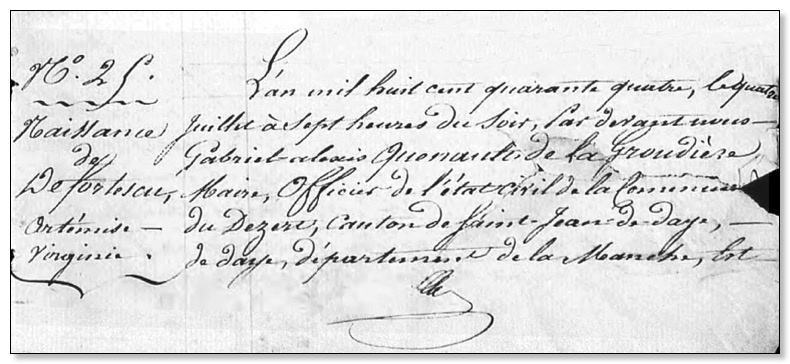 N.º 25.
Naissance
de
Defortescu,
Artémise —
Virginie.
L'an mil huit cent quarante quatre, le quatre
Juillet à Sept heures du Soir, Par devant nous —
Gabriel alexis Quonault de la Groudière
Maire, Officier de l'état Civil de la Commune
du Dezert, Canton de Saint-Jean-de-daye, —
de daye, département de la Manche, Est —